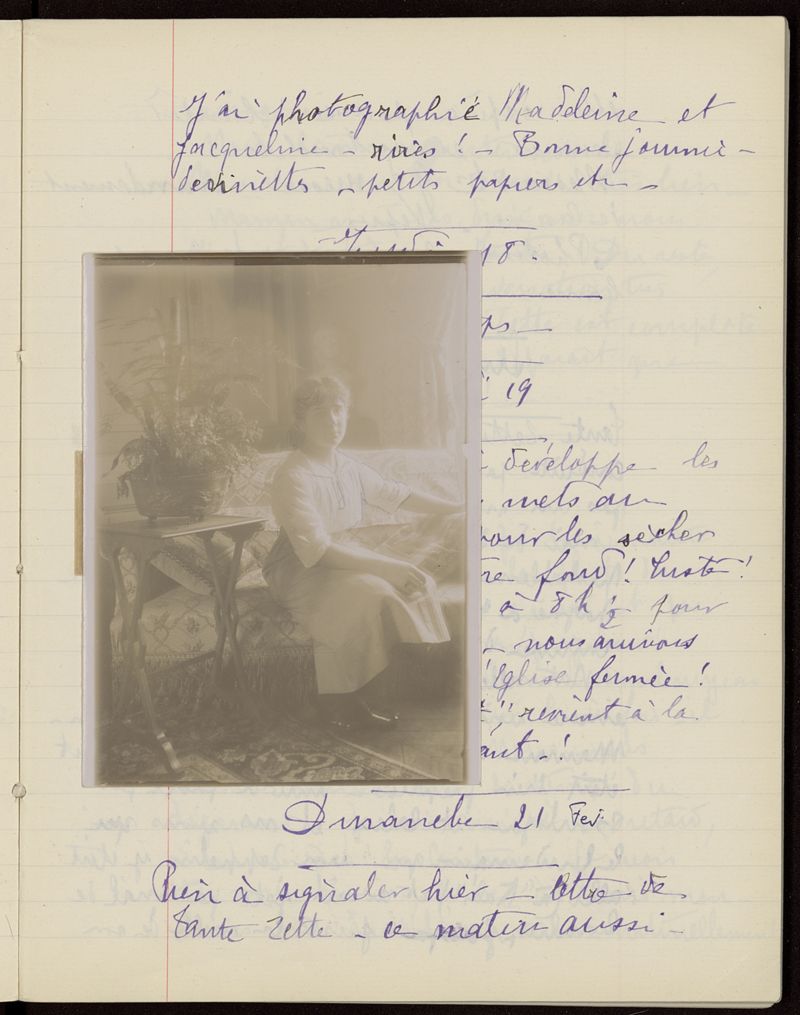 J'ai photographié Madeleine et
Jacqueline – rires ! – Bonne journée –
devinettes – petits papiers etc –
18.
ps –
19
développe les
mets au
pour les sècher
fond ! Zuste !
à 8h ½ pour
– nous arrivons
Eglise fermée !
revient à la
ant – !
Dimanche 21 Fev.
Rien à signaler hier – lettre de
Tante Zette – ce matin aussi –